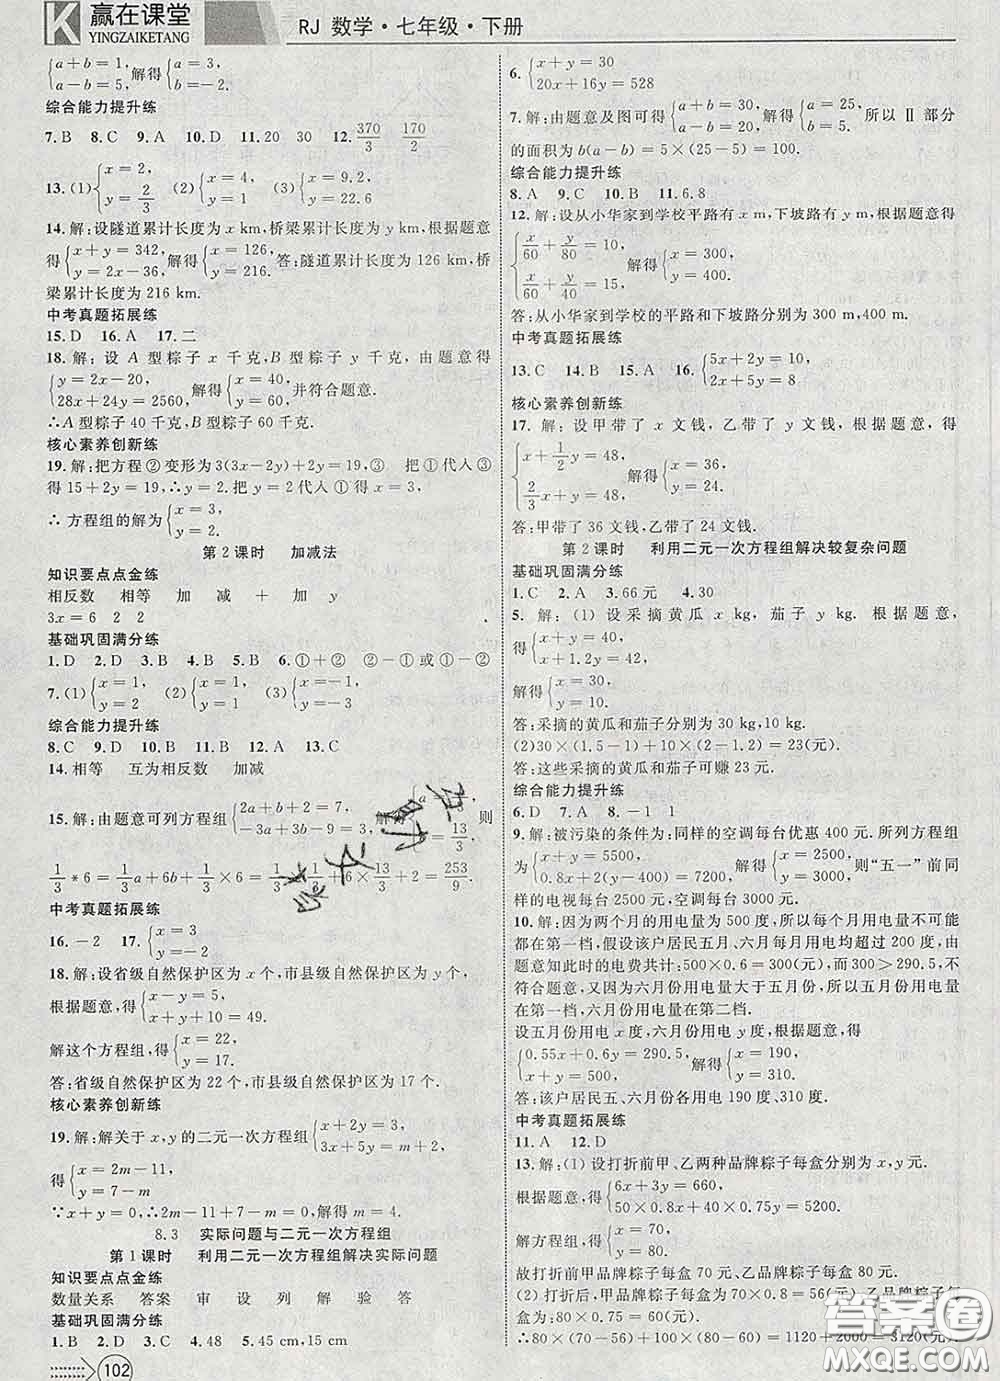 赢在课堂
YINGZAIKETANG
RJ 数学·七年级·下册
{a+b=1, a-b=5, 解得{a=3, b=-2.
综合能力提升练
7.B 8.C 9.A 10.D 11.20 30 12.370/3 170/2
13.(1){x=2, y=2/3 (2){x=4, y=1 (3){x=9.2, y=22.6
14.解:设隧道累计长度为 x km,桥梁累计长度为 y km,根据题意
得{x+y=342, y=2x-36, 解得{x=126, y=216. 答:隧道累计长度为 126 km,桥
梁累计长度为 216 km.
中考真题拓展练
15.D 16.A 17.二
18.解:设 A 型粽子 x 千克,B 型粽子 y 千克,由题意得
{y=2x-20, 28x+24y=2560, 解得{x=40, y=60, 并符合题意.
∴A 型粽子 40 千克,B 型粽子 60 千克.
核心素养创新练
19.解:把方程②变形为 3(3x-2y)+2y=19,③ 把①代入③
得 15+2y=19,∴y=2. 把 y=2 代入①得 x=3,
∴方程组的解为{x=3, y=2.
第2课时 加减法
知识要点点金练
相反数 相等 加 减 + 加 y
3x=6 2 2
基础巩固满分练
1.D 2.D 3.B 4.B 5.B 6.①+② ②-①或①-②
7.(1){x=1, y=1 (2){x=1, y=1 (3){x=-1, y=-3
综合能力提升练
8.C 9.D 10.B 11.B 12.A 13.C
14.相等 互为相反数 加减
15.解:由题意可列方程组{2a+b+2=7, -3a+3b-9=3, 则
1/3*6=1/3a+6b+1/3×6=1/3×1/3+6×13/3+2=253/9.
中考真题拓展练
16.-2 17.{x=3 y=-2
18.解:设省级自然保护区为 x 个,市县级自然保护区为 y 个,
根据题意,得{x-y=5, x+y+10=49.
解这个方程组,得{x=22, y=17.
答:省级自然保护区为 22 个,市县级自然保护区为 17 个.
核心素养创新练
19.解:解关于 x,y 的二元一次方程组{x+2y=3, 3x+5y=m+2,
得{x=2m-11, y=7-m.
∵x+y=0,∴2m-11+7-m=0,解得 m=4.
8.3 实际问题与二元一次方程组
第1课时 利用二元一次方程组解决实际问题
知识要点点金练
数量关系 答案 审 设 列 解 验 答
基础巩固满分练
1.B 2.D 3.D 4.48 5.45 cm,15 cm
102
6.{x+y=30 20x+16y=528
7.解:由题意及图可得{a+b=30, a-b=20, 解得{a=25, b=5. 所以 Ⅱ 部分
的面积为 b(a-b)=5×(25-5)=100.
综合能力提升练
8.A 9.C 10.B 11.6.8
12.解:设从小华家到学校平路有 x m,下坡路有 y m,根据题意得
{x/60+y/80=10, x/60+y/40=15, 解得{x=300, y=400.
答:从小华家到学校的平路和下坡路分别为 300 m,400 m.
中考真题拓展练
13.C 14.B 15.A 16.{5x+2y=10 2x+5y=8
核心素养创新练
17.解:设甲带了 x 文钱,乙带了 y 文钱,根据题意,得
{x+1/2y=48, 2/3x+y=48, 解得{x=36, y=24.
答:甲带了 36 文钱,乙带了 24 文钱.
第2课时 利用二元一次方程组解决较复杂问题
基础巩固满分练
1.C 2.A 3.66元 4.30
5.解:(1)设采摘黄瓜 x kg,茄子 y kg. 根据题意,
得{x+y=40, x+1.2y=42.
解得{x=30, y=10.
答:采摘的黄瓜和茄子分别为 30 kg,10 kg.
(2)30×(1.5-1)+10×(2-1.2)=23(元).
答:这些采摘的黄瓜和茄子可赚 23 元.
综合能力提升练
6.D 7.A 8.-1 1
9.解:被污染的条件为:同样的空调每台优惠 400 元. 所列方程组
为{x+y=5500, 0.8x+2(y-400)=7200, 解得{x=2500, y=3000. 则“五一”前同
样的电视每台 2500 元,空调每台 3000 元.
10.解:因为两个月的用电量为 500 度,所以每个月用电量不可能
都在第一档,假设该户居民五月、六月每月用电均超过 200 度,由
题意知此时的电费共计:500×0.6=300(元),而 300>290.5,不
符合题意,又因为六月份用电量大于五月份,所以五月份用电量
在第一档,六月份用电量在第二档.
设五月份用电 x 度,六月份用电 y 度,根据题意,得
{0.55x+0.6y=290.5, x+y=500, 解得{x=190, y=310.
答:该户居民五、六月份各用电 190 度、310 度.
中考真题拓展练
11.A 12.D
13.解:(1)设打折前甲、乙两种品牌粽子每盒分别为 x,y 元.
根据题意,得{6x+3y=660, 50×0.8x+40×0.75y=5200,
解方程组,得{x=70, y=80.
故打折前甲品牌粽子每盒 70 元,乙品牌粽子每盒 80 元.
(2)打折后,甲品牌粽子每盒为 70×0.8=56(元),乙品牌粽子每
盒
∴80×(70-56)+100×(80-60)=1120+2000=3120(元).
答案圈
MXQE.COM